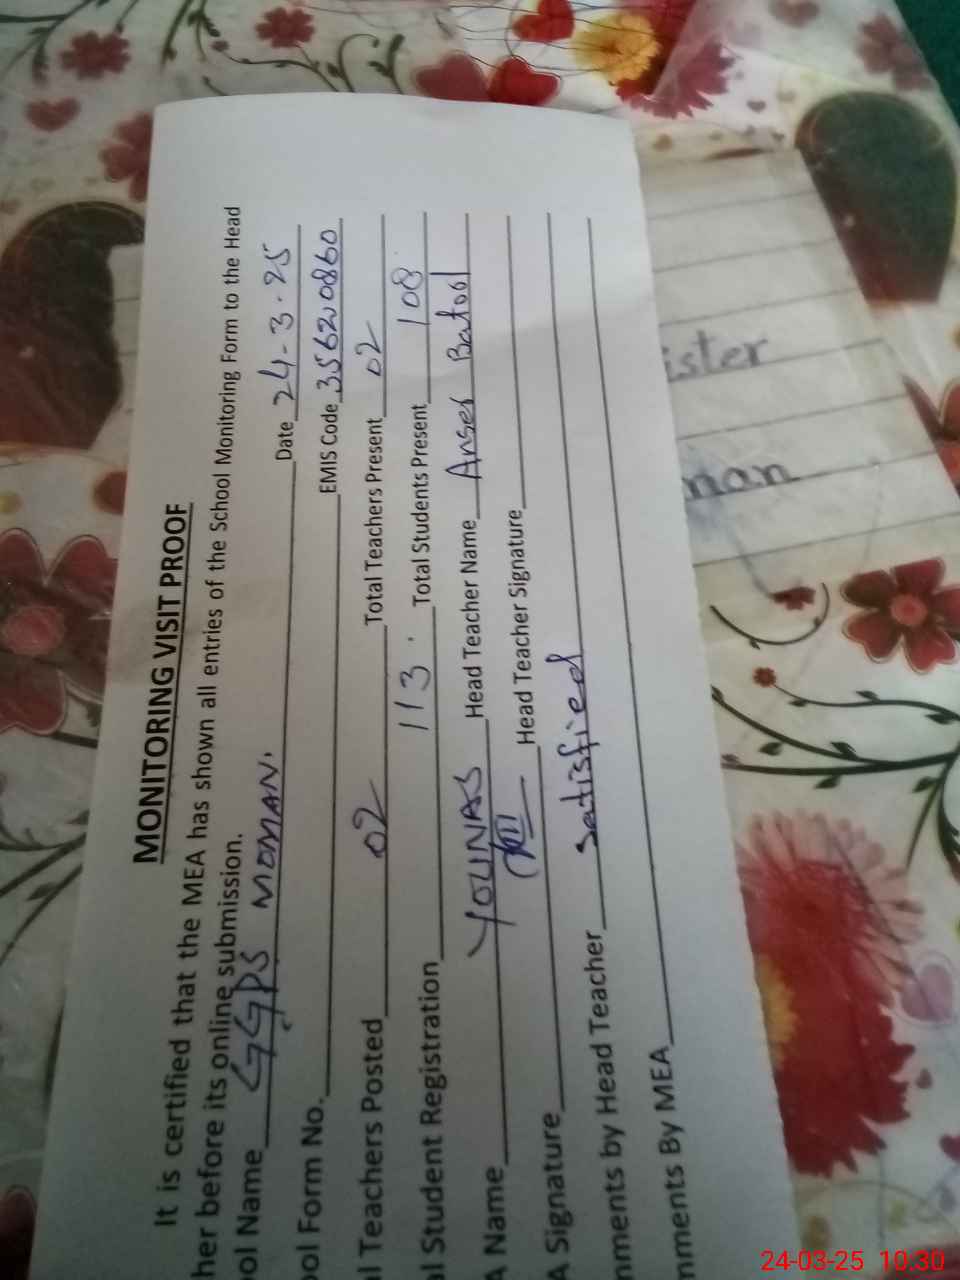 MONITORING VISIT PROOF
It is certified that the MEA has shown all entries of the School Monitoring Form to the Head
her before its online submission.
ol Name GGPS MOMAN. Date 24-3-25
ool Form No. EMIS Code 35620860
l Teachers Posted 02 Total Teachers Present 02
al Student Registration 113 Total Students Present 108
A Name YOUNAS Head Teacher Name Anser Batool
A Signature Head Teacher Signature
nments by Head Teacher Satisfied
nments By MEA
ister
nan
24-03-25 10:30